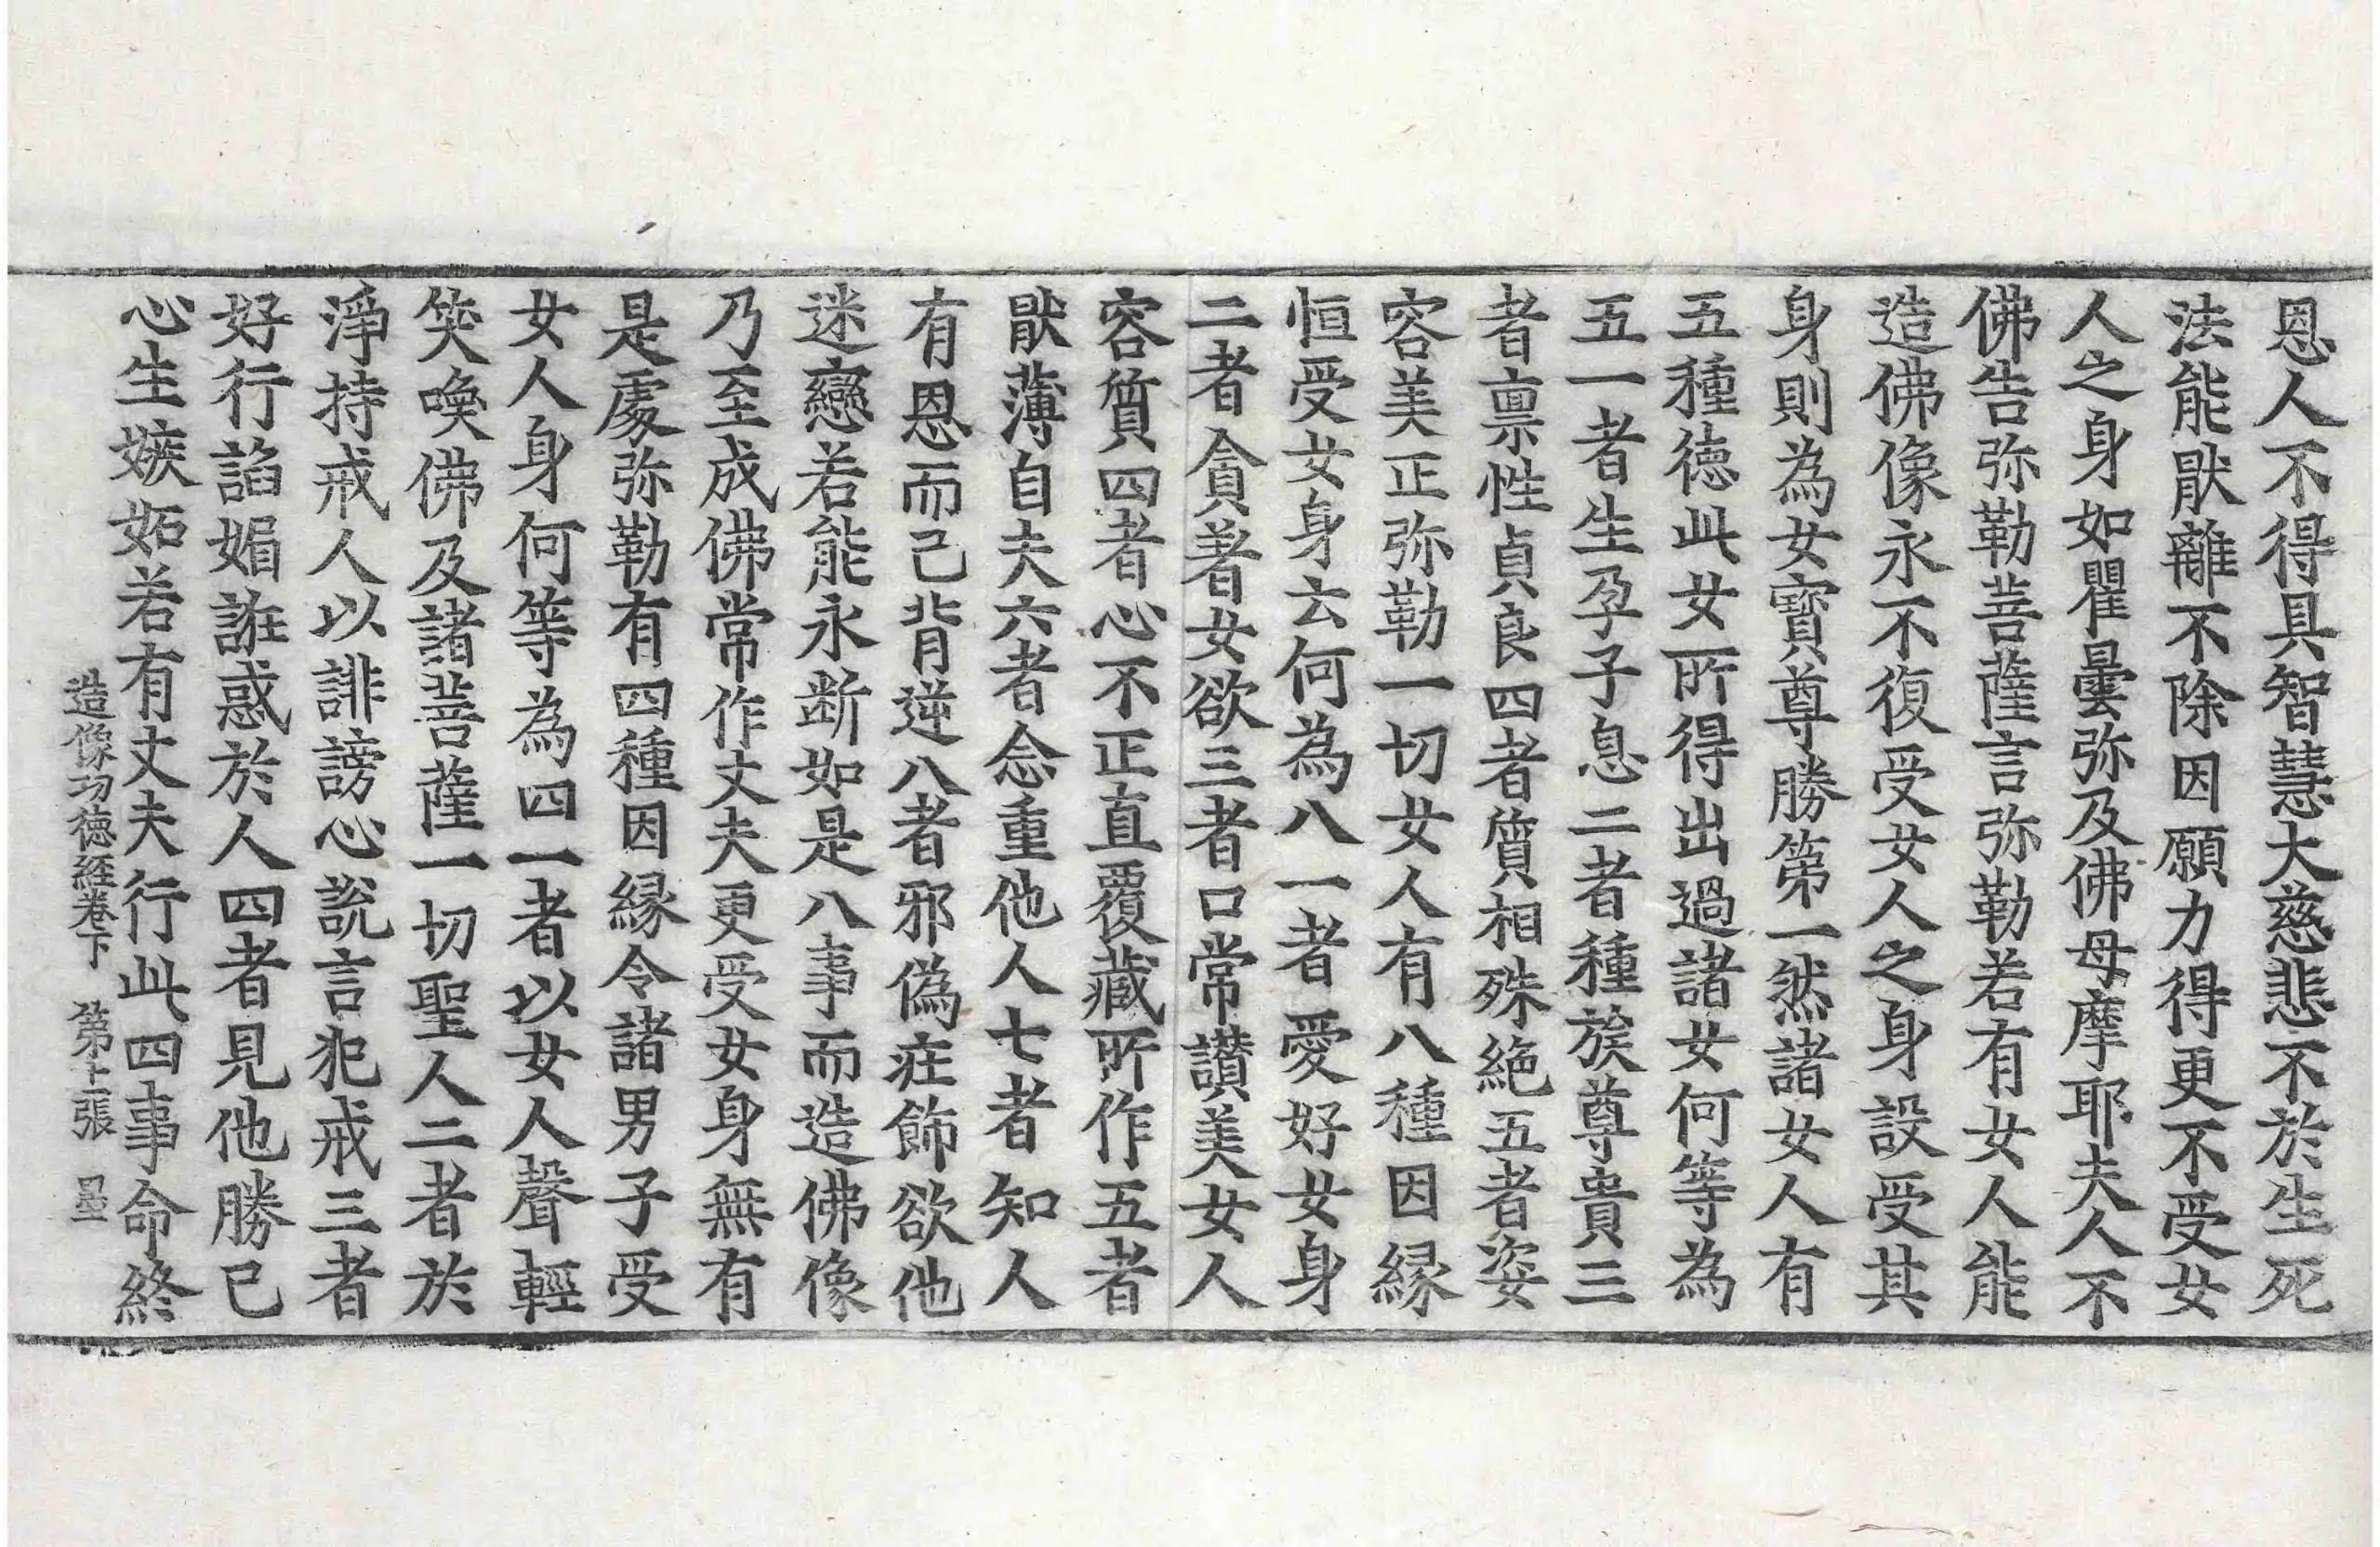 恩人不得具智慧大慈悲不於生死
法能猒離不除因願力得更不受女
人之身如瞿曇弥及佛母摩耶夫人不
佛告弥勒菩薩言弥勒若有女人能
造佛像永不復受女人之身設受其
身則為女寶尊勝第一然諸女人有
五種徳此女所得出過諸女何等為
五一者生孕子息二者種族尊貴三
者禀性貞良四者質相殊絶五者姿
容美正弥勒一切女人有八種因縁
恒受女身云何為八一者愛好女身
二者貪著女欲三者口常讃美女人
容質四者心不正直覆藏所作五者
猒薄自夫六者念重他人七者知人
有恩而己背逆八者邪偽莊飾欲他
迷戀若能永断如是八事而造佛像
乃至成佛常作丈夫更受女身無有
是處弥勒有四種因縁令諸男子受
女人身何等為四一者以女人聲輕
笑喚佛及諸菩薩一切聖人二者於
淨持戒人以誹謗心説言犯戒三者
好行諂媚誑惑於人四者見他勝己
心生嫉妬若有丈夫行此四事命終
造像功徳経卷下 第十二張 墨